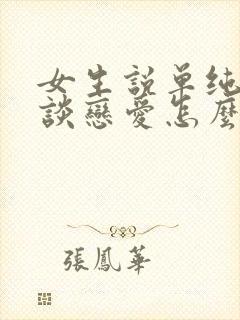 女生説单纯
談戀愛怎麽
張鳳華